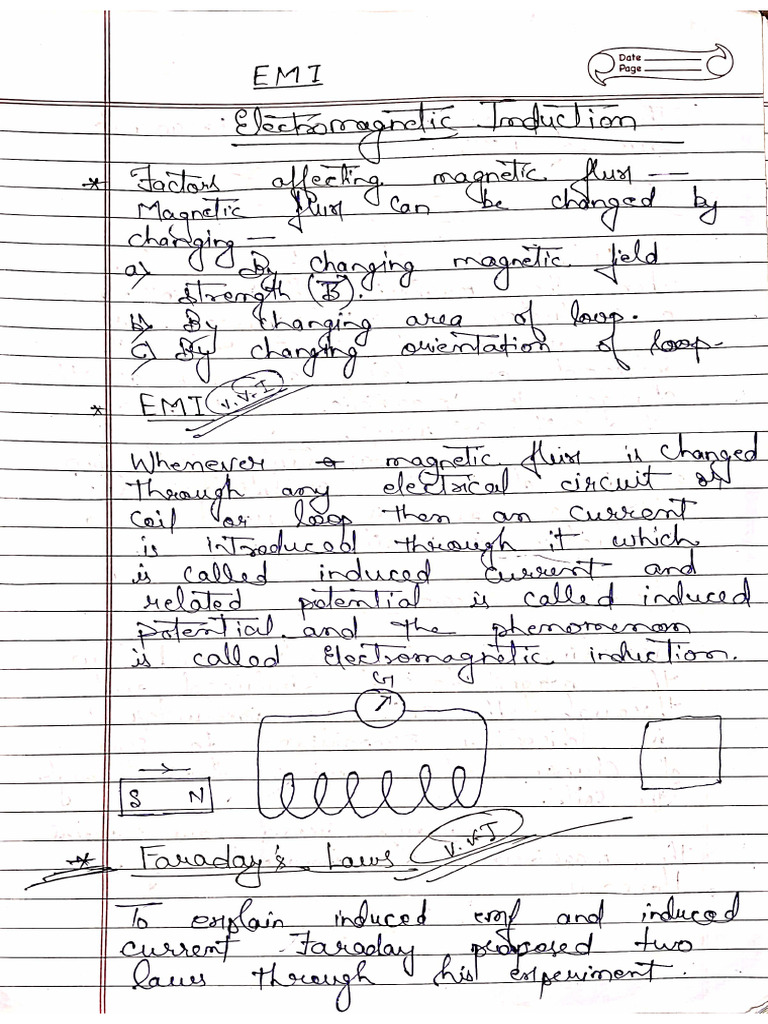 EMI
Date
Page
Electromagnetic Induction
* Factors affecting magnetic flux —
Magnetic flux can be changed by
changing —
a) By changing magnetic field
strength (B).
b) By changing area of loop.
c) By changing orientation of loop.
* EMI V.V.I
Whenever magnetic flux is changed
through any electrical circuit or
coil or loop then an current
is introduced through it which
is called induced current and
related potential is called induced
potential and the phenomenon
is called Electromagnetic induction.
G
S N
* Faraday's Laws V.V.I
To explain induced emf and induced
current Faraday proposed two
laws through his experiment.